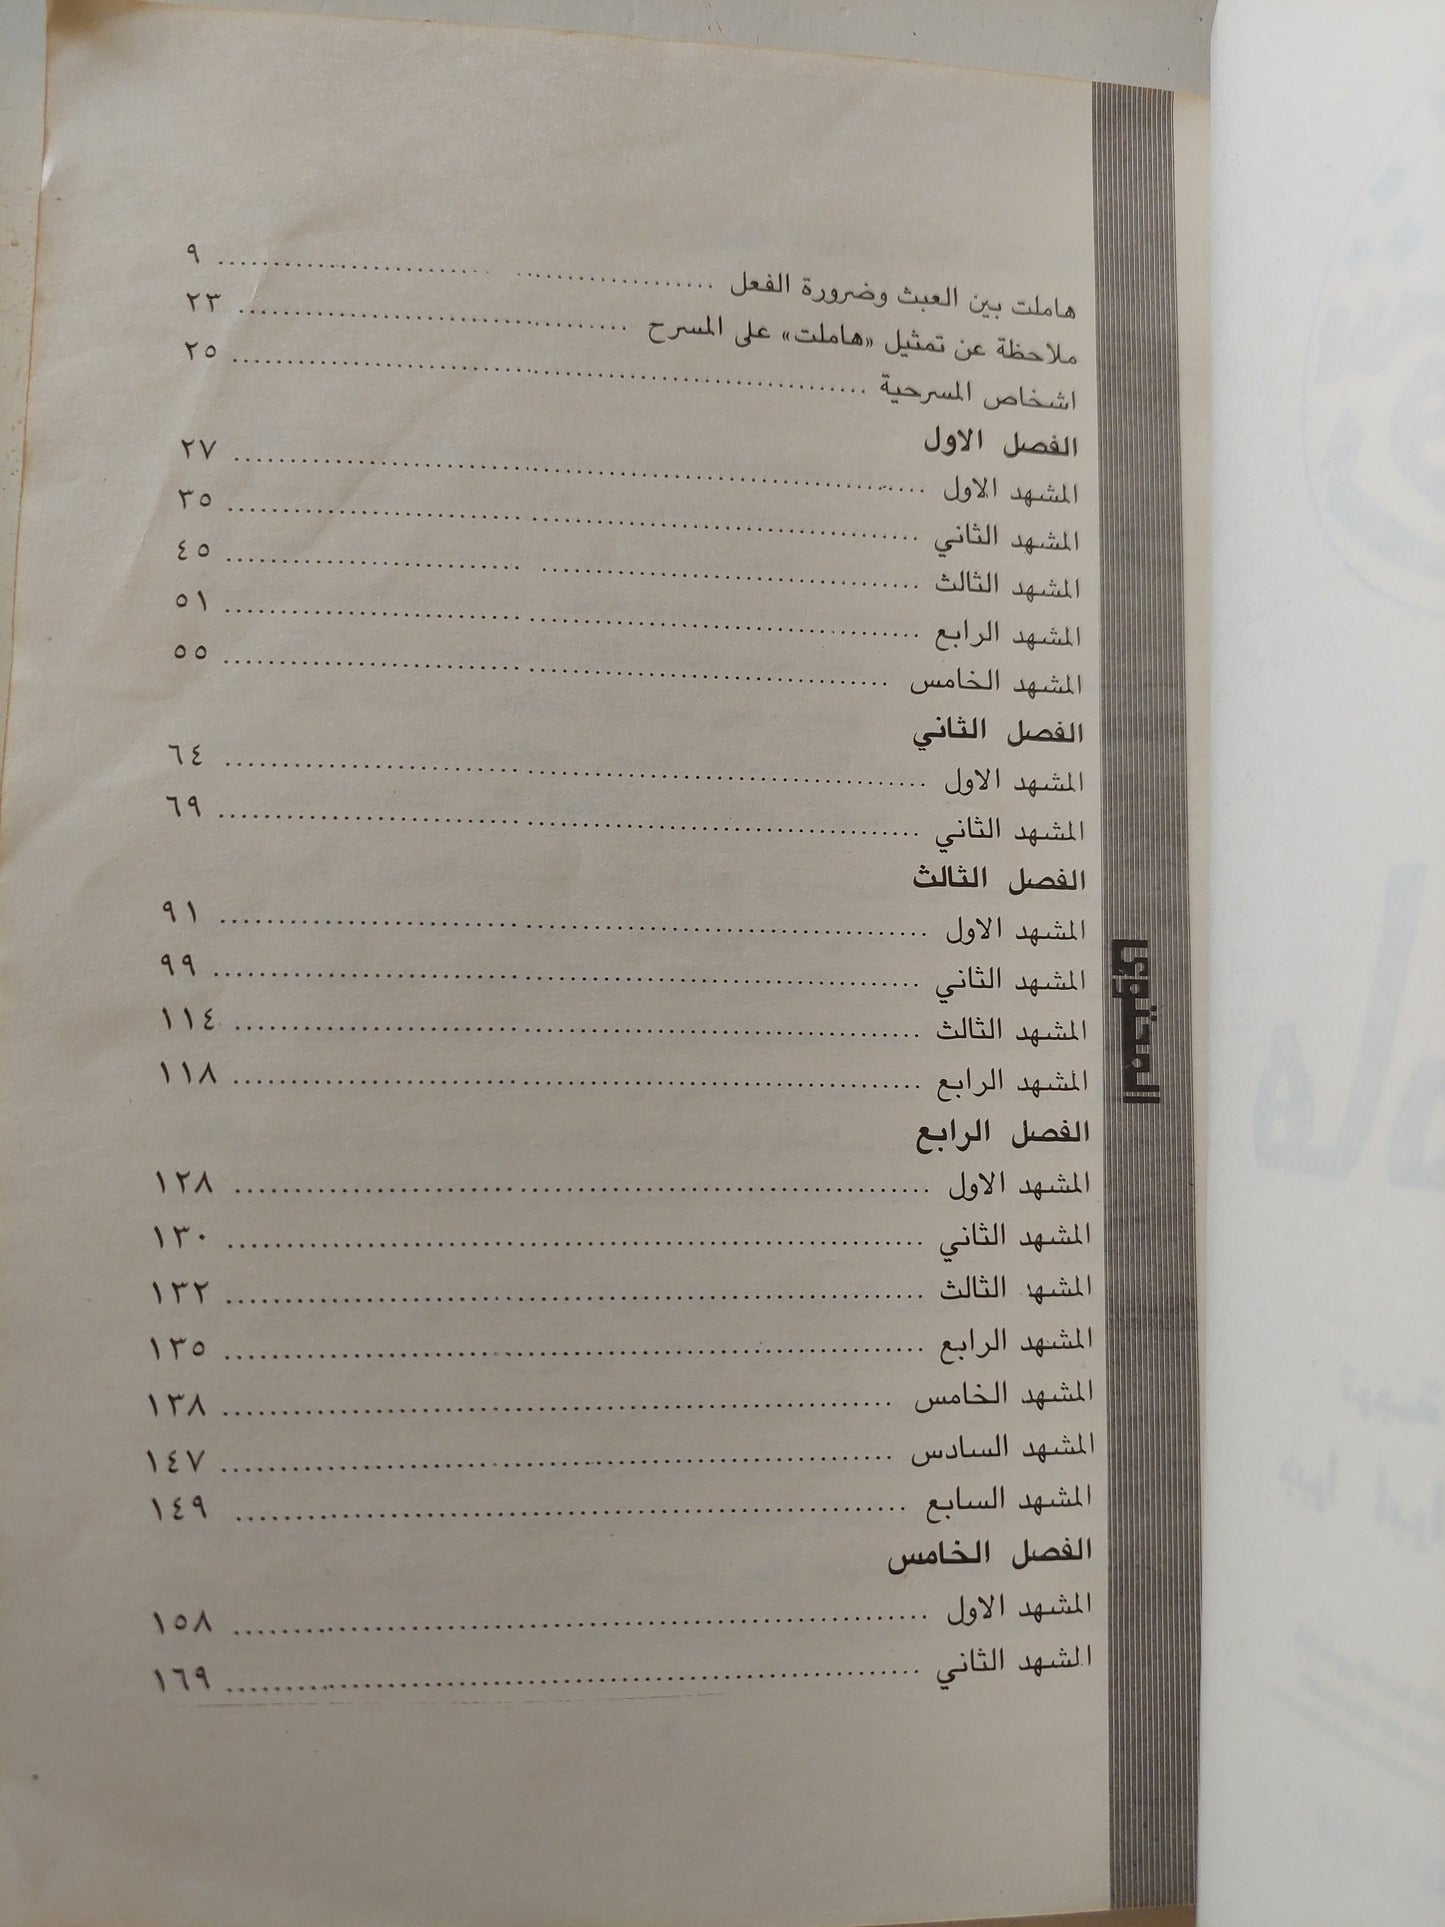 المحتوى
هاملت بين العبث وضرورة الفعل ........ ٩
ملاحظة عن تمثيل «هاملت» على المسرح ........ ٢٣
اشخاص المسرحية ........ ٢٥
الفصل الاول
المشهد الاول ........ ٢٧
المشهد الثاني ........ ٣٥
المشهد الثالث ........ ٤٥
المشهد الرابع ........ ٥١
المشهد الخامس ........ ٥٥
الفصل الثاني
المشهد الاول ........ ٦٤
المشهد الثاني ........ ٦٩
الفصل الثالث
المشهد الاول ........ ٩١
المشهد الثاني ........ ٩٩
المشهد الثالث ........ ١١٤
المشهد الرابع ........ ١١٨
الفصل الرابع
المشهد الاول ........ ١٢٨
المشهد الثاني ........ ١٣٠
المشهد الثالث ........ ١٣٢
المشهد الرابع ........ ١٣٥
المشهد الخامس ........ ١٣٨
المشهد السادس ........ ١٤٧
المشهد السابع ........ ١٤٩
الفصل الخامس
المشهد الاول ........ ١٥٨
المشهد الثاني ........ ١٦٩